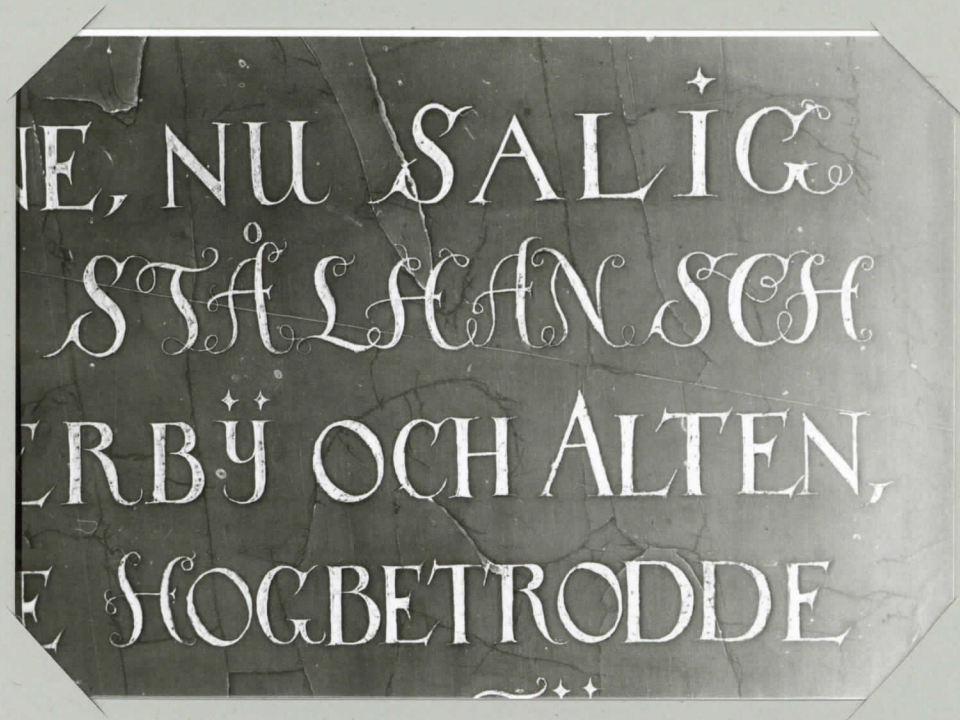 NE, NU SALIG
STÅLHAN SCH
ERBÿ OCH ALTEN,
E HOGBETRODDE